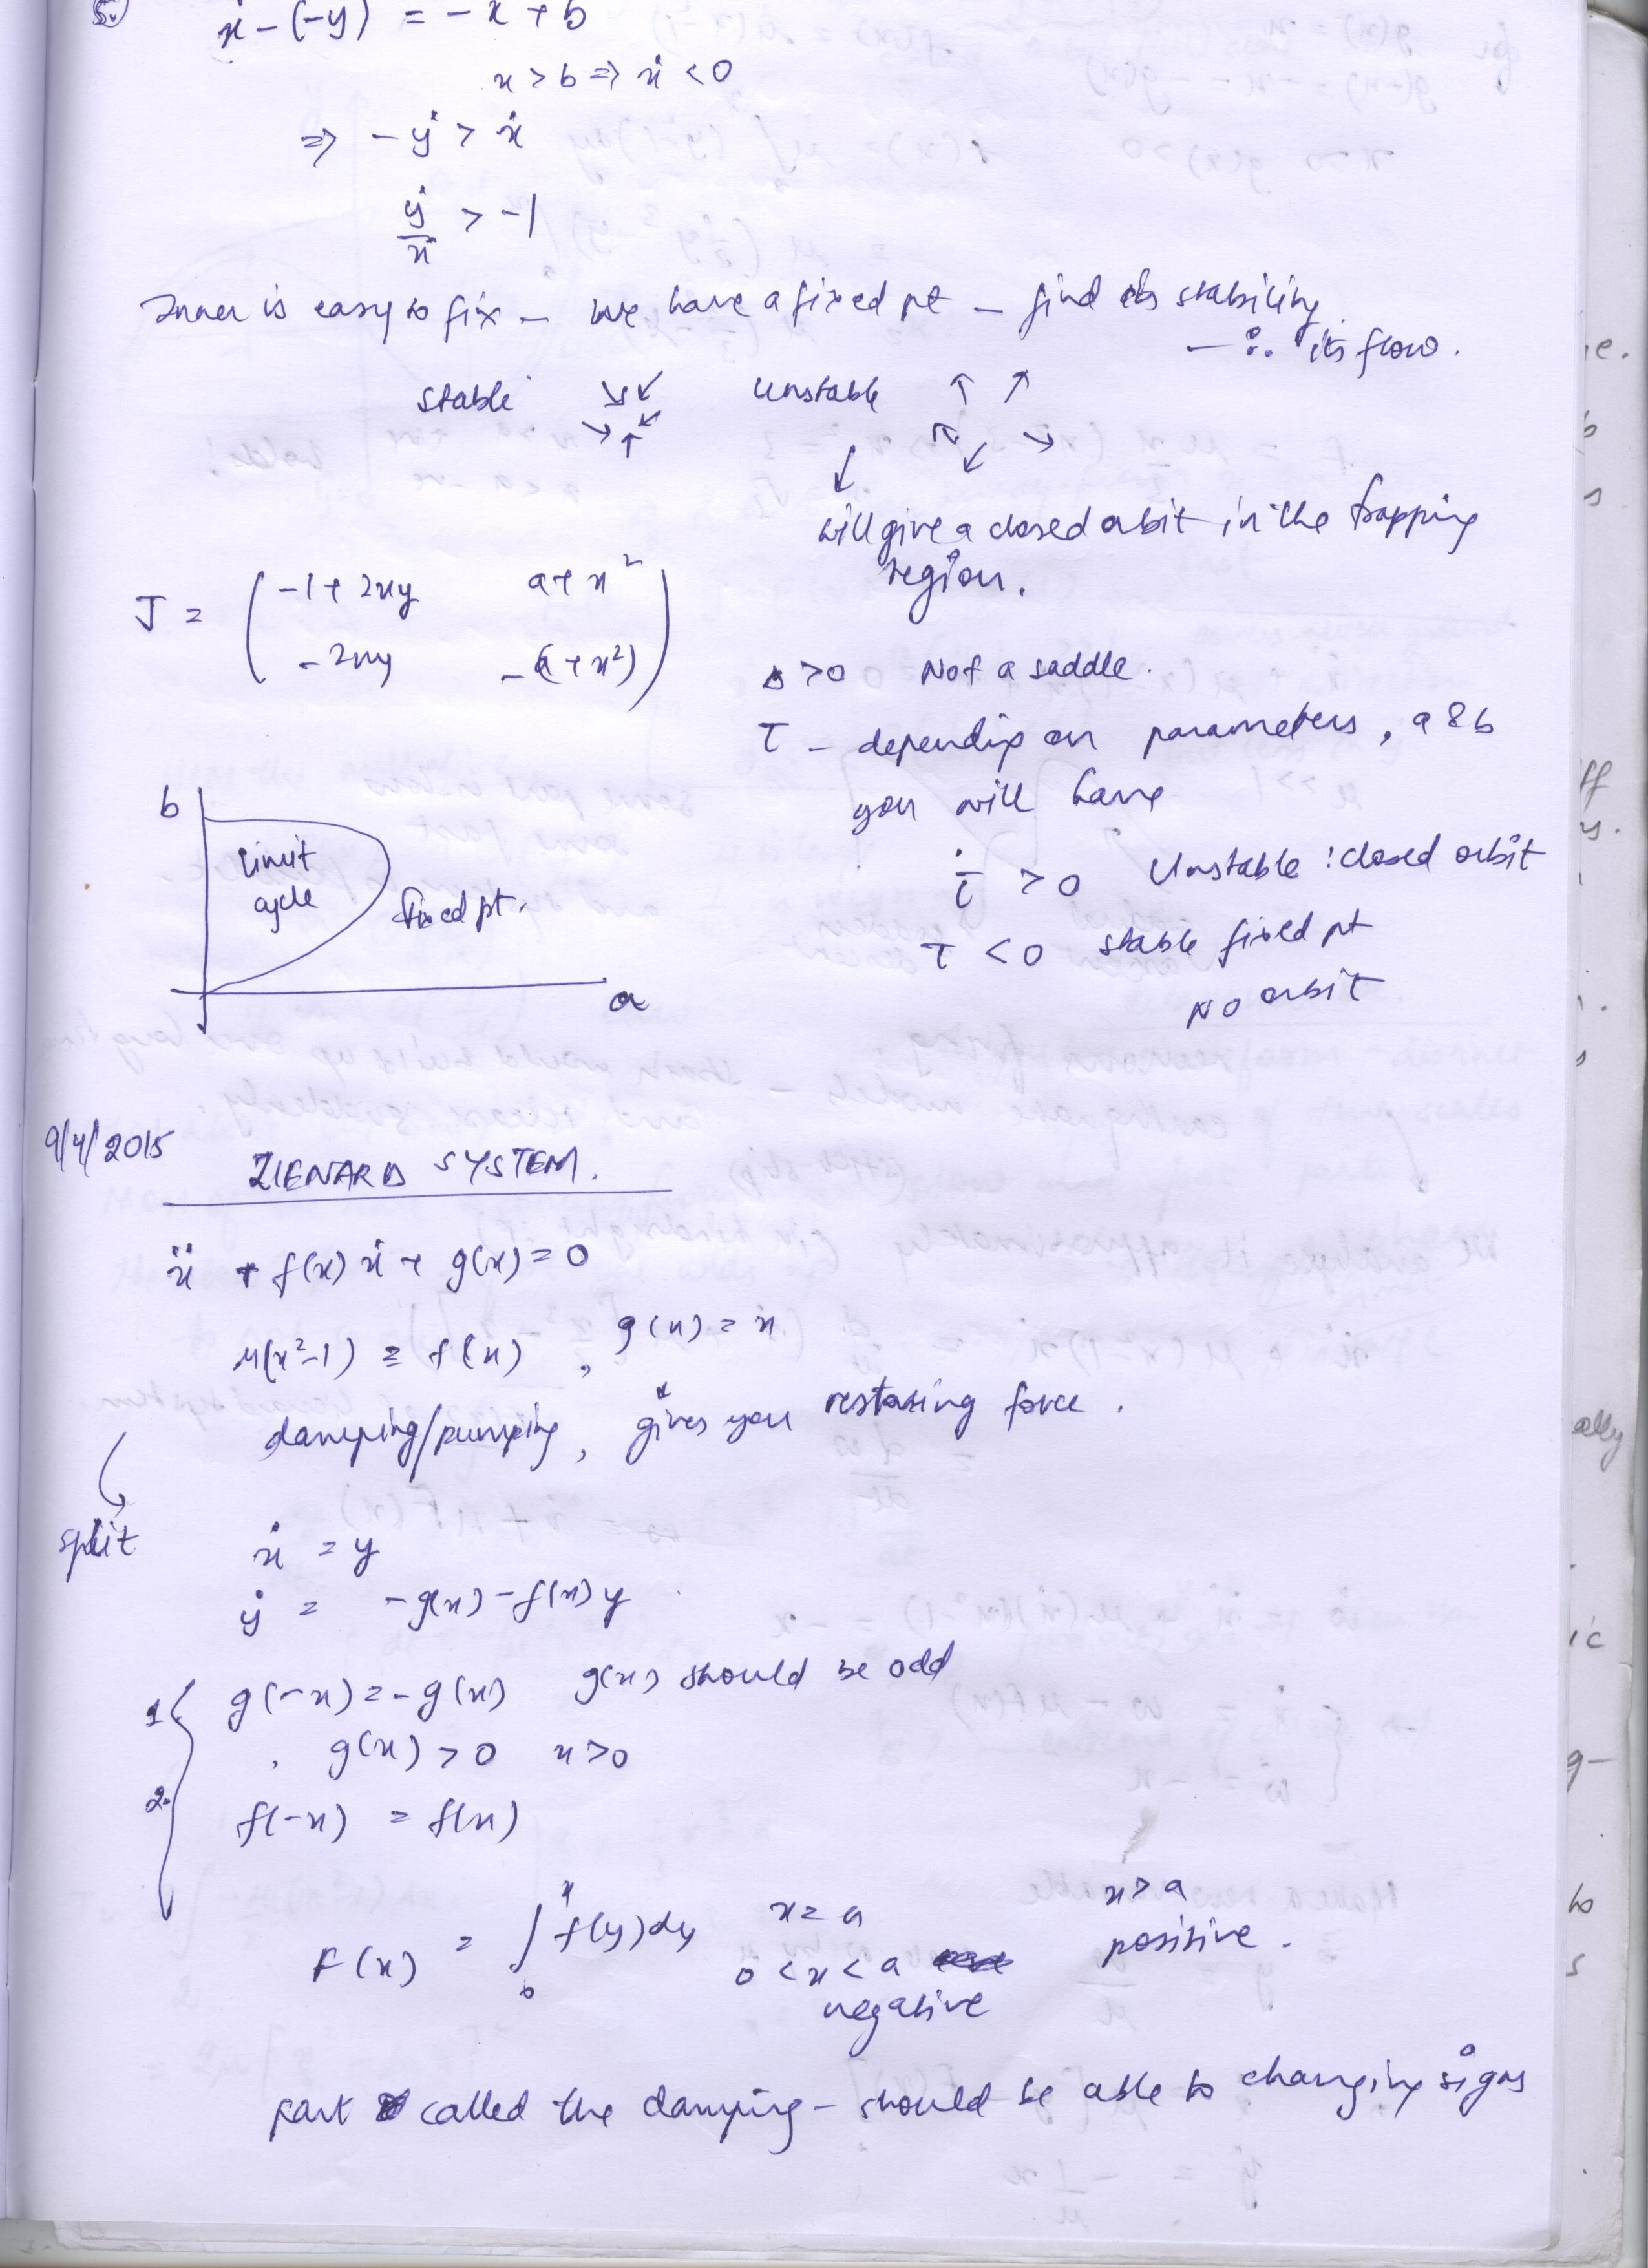 5.
ẋ - (-ẏ) = -x + b
x > b => ẋ < 0
=> -ẏ > ẋ
ẏ/ẋ > -1
Inner is easy to fix – We have a fixed pt – find its stability
– ∴ its flow.
stable ↘↙ ↘↑↙ Unstable ↑ ↗ ↖ ↙ ↘
↓
will give a closed orbit in the trapping
region.
J = ( -1 + 2xy   a + x²
-2xy   -(a + x²) )
Δ > 0 Not a saddle.
τ – depending on parameters, a & b
you will have
τ > 0 Unstable : closed orbit
τ < 0 stable fixed pt
No orbit
b
limit
cycle
fixed pt.
a
9/4/2015
LIENARD SYSTEM.
ẍ + f(x) ẋ + g(x) = 0
μ(x²-1) = f(x) , g(x) = x
damping/pumping, gives you restoring force.
split
ẋ = y
ẏ = -g(x) - f(x) y
1 g(-x) = -g(x) g(x) should be odd
g(x) > 0 x > 0
2. f(-x) = f(x)
F(x) = ∫₀ˣ f(y)dy x = a x > a
0 < x < a positive.
negative
part called the damping – should be able to changing signs